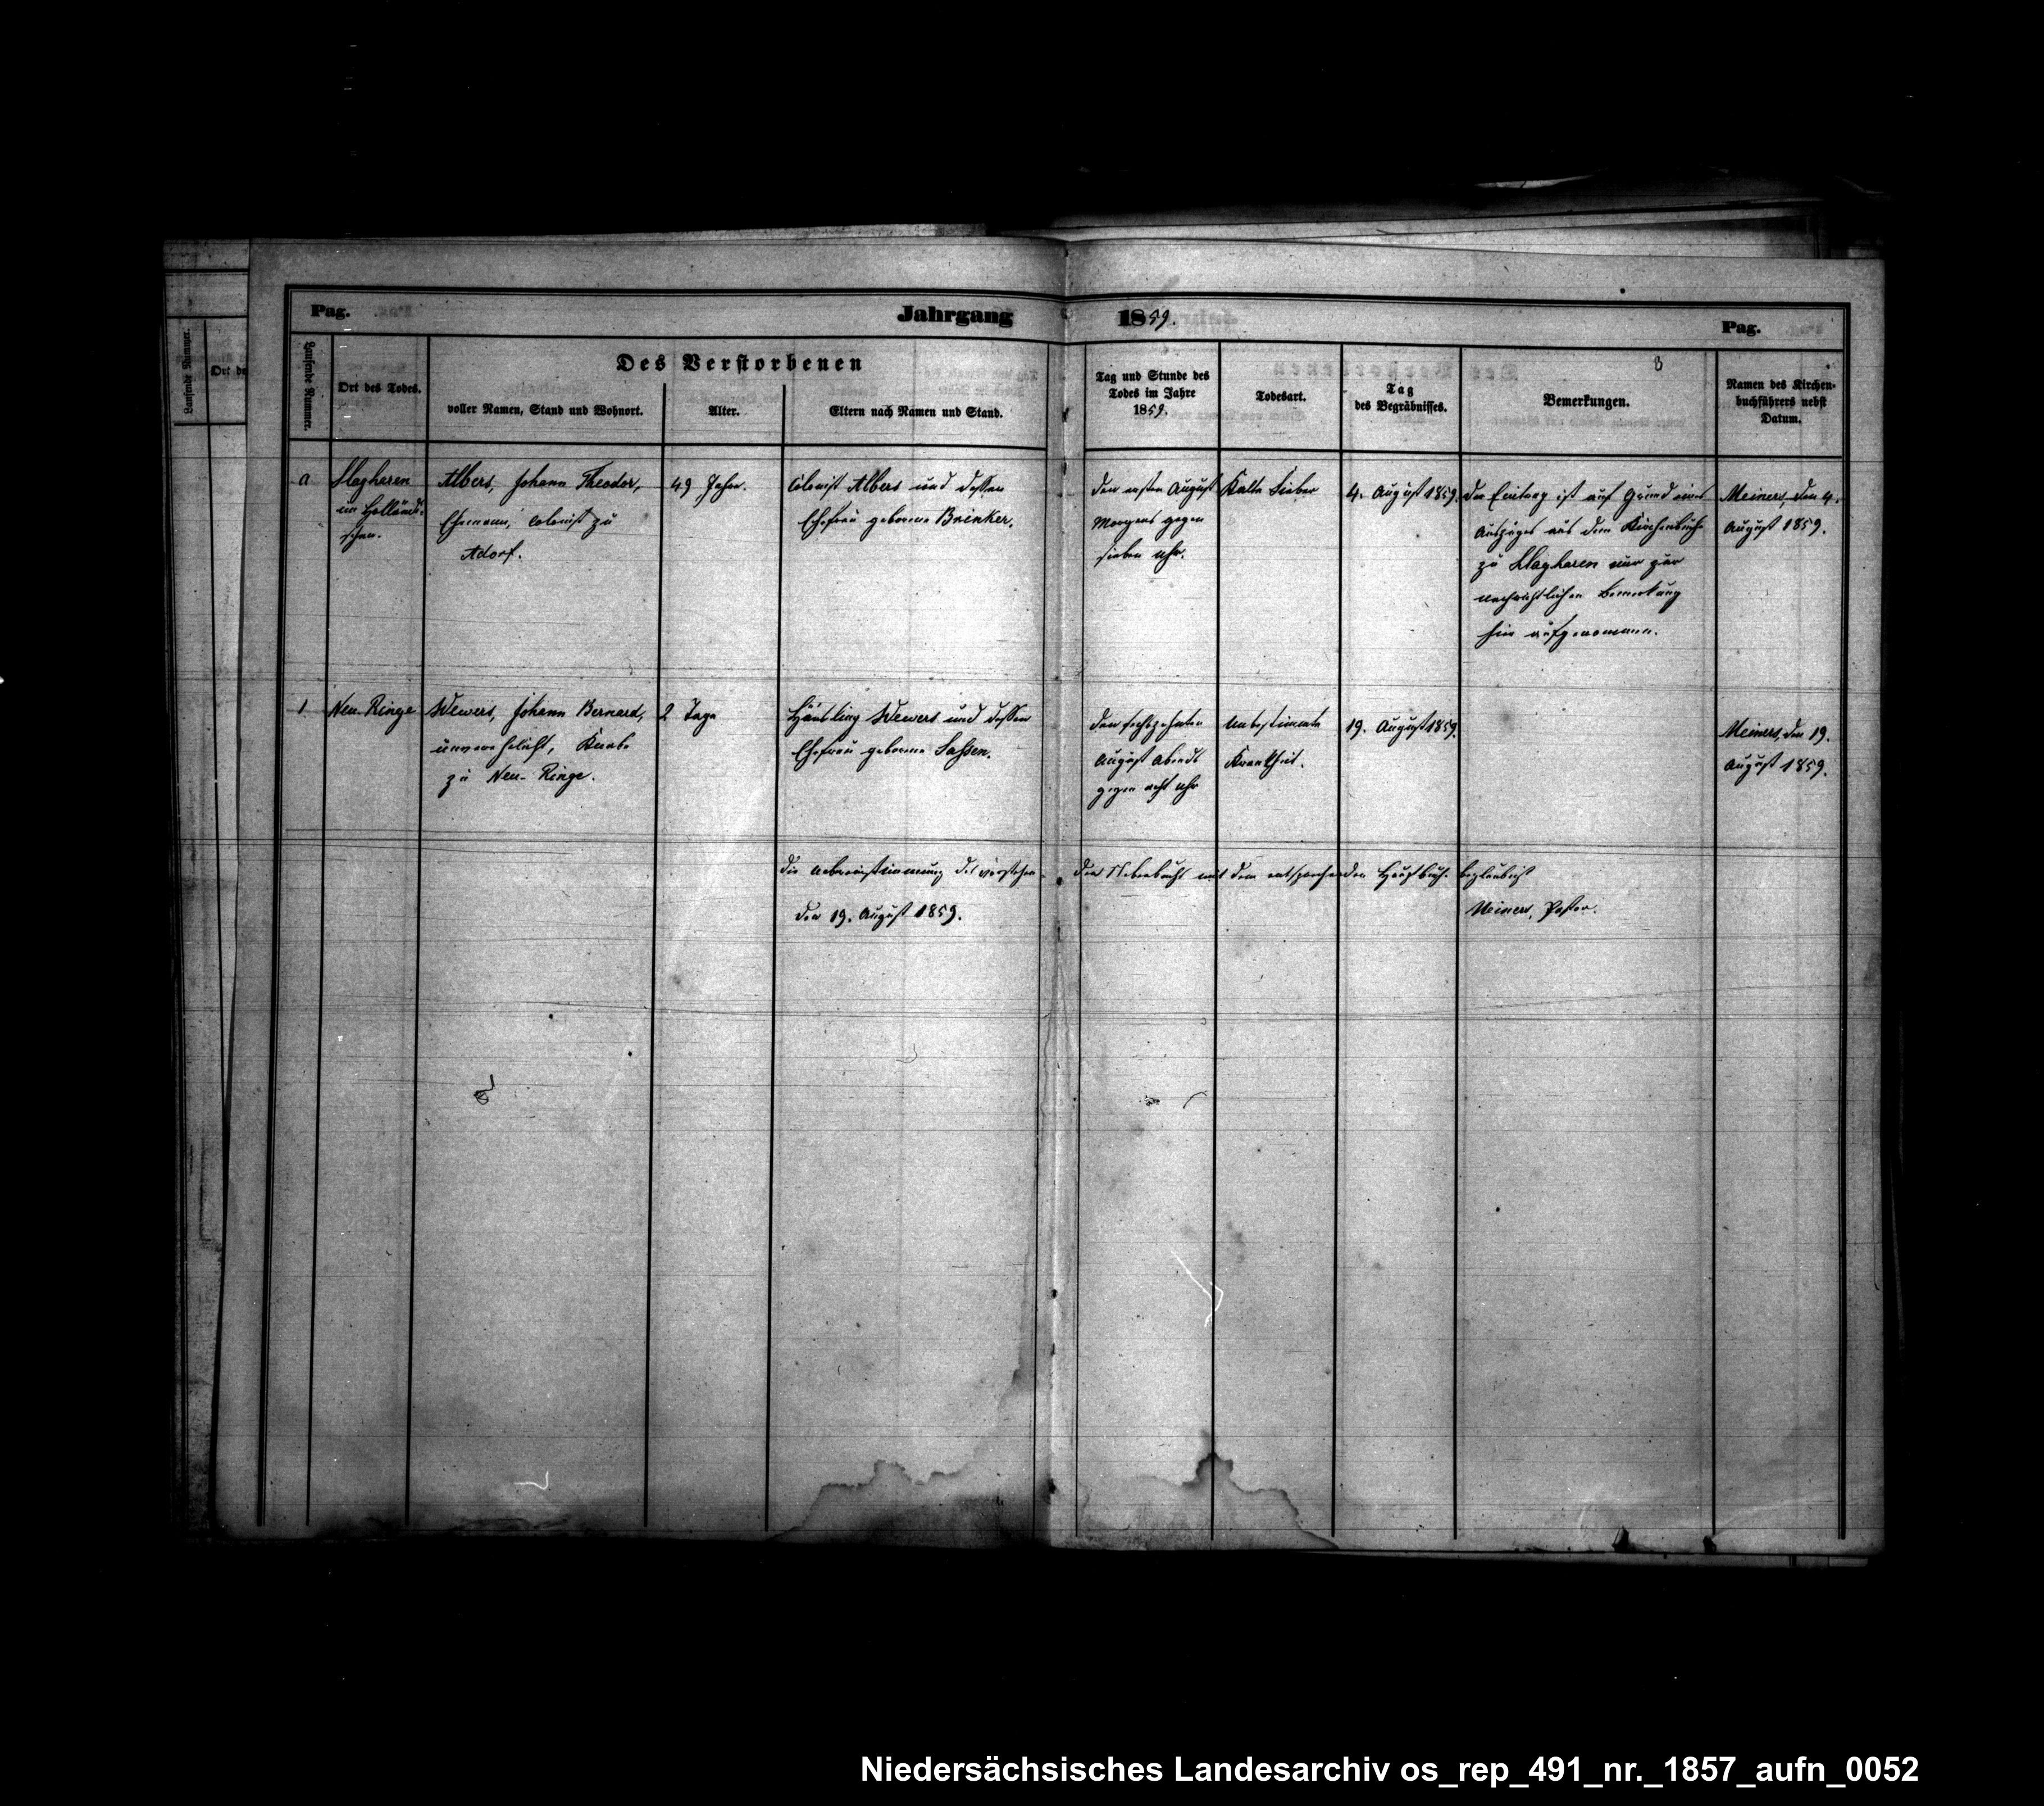 Pag.
Jahrgang
1859.
Pag.
Laufende Nummer.
Ort de
Laufende Nummer.
Ort des Todes.
Des Verstorbenen
voller Namen, Stand und Wohnort.
Alter.
Eltern nach Namen und Stand.
Tag und Stunde des
Todes im Jahre
1859.
Todesart.
Tag
des Begräbnisses.
8
Bemerkungen.
Namen des Kirchen-
buchführers nebst
Datum.
a
Slagharen
im Holländi-
schen.
Albers, Johann Theodor,
Ehemann, Colonist zu
Adorf.
49 Jahre.
Colonist Albers und dessen
Ehefrau geborene Brinker.
den ersten August
Morgens gegen
sieben Uhr.
Kalte Fieber
4. August 1859.
Der Eintrag ist auf Grund eines
Auszuges aus dem Kirchenbuche
zu Slagharen nur zur
nachrichtlichen Bemerkung
hier aufgenommen.
Meiners, den 4.
August 1859.
1
Neu-Ringe
Wewers, Johann Bernard,
unverehelicht, Knabe
zu Neu-Ringe.
2 Tage
Häusling Wewers und dessen
Ehefrau geborene Sassen.
den sechszehnten
August Abends
gegen acht Uhr
Unbestimmte
Krankheit.
19. August 1859.
Meiners, den 19.
August 1859.
Die Uebereinstimmung des vorstehen-
den Nebenbuchs mit dem entsprechenden Hauptbuche beglaubigt
den 19. August 1859.
Meiners, Pastor.
Niedersächsisches Landesarchiv os_rep_491_nr._1857_aufn_0052